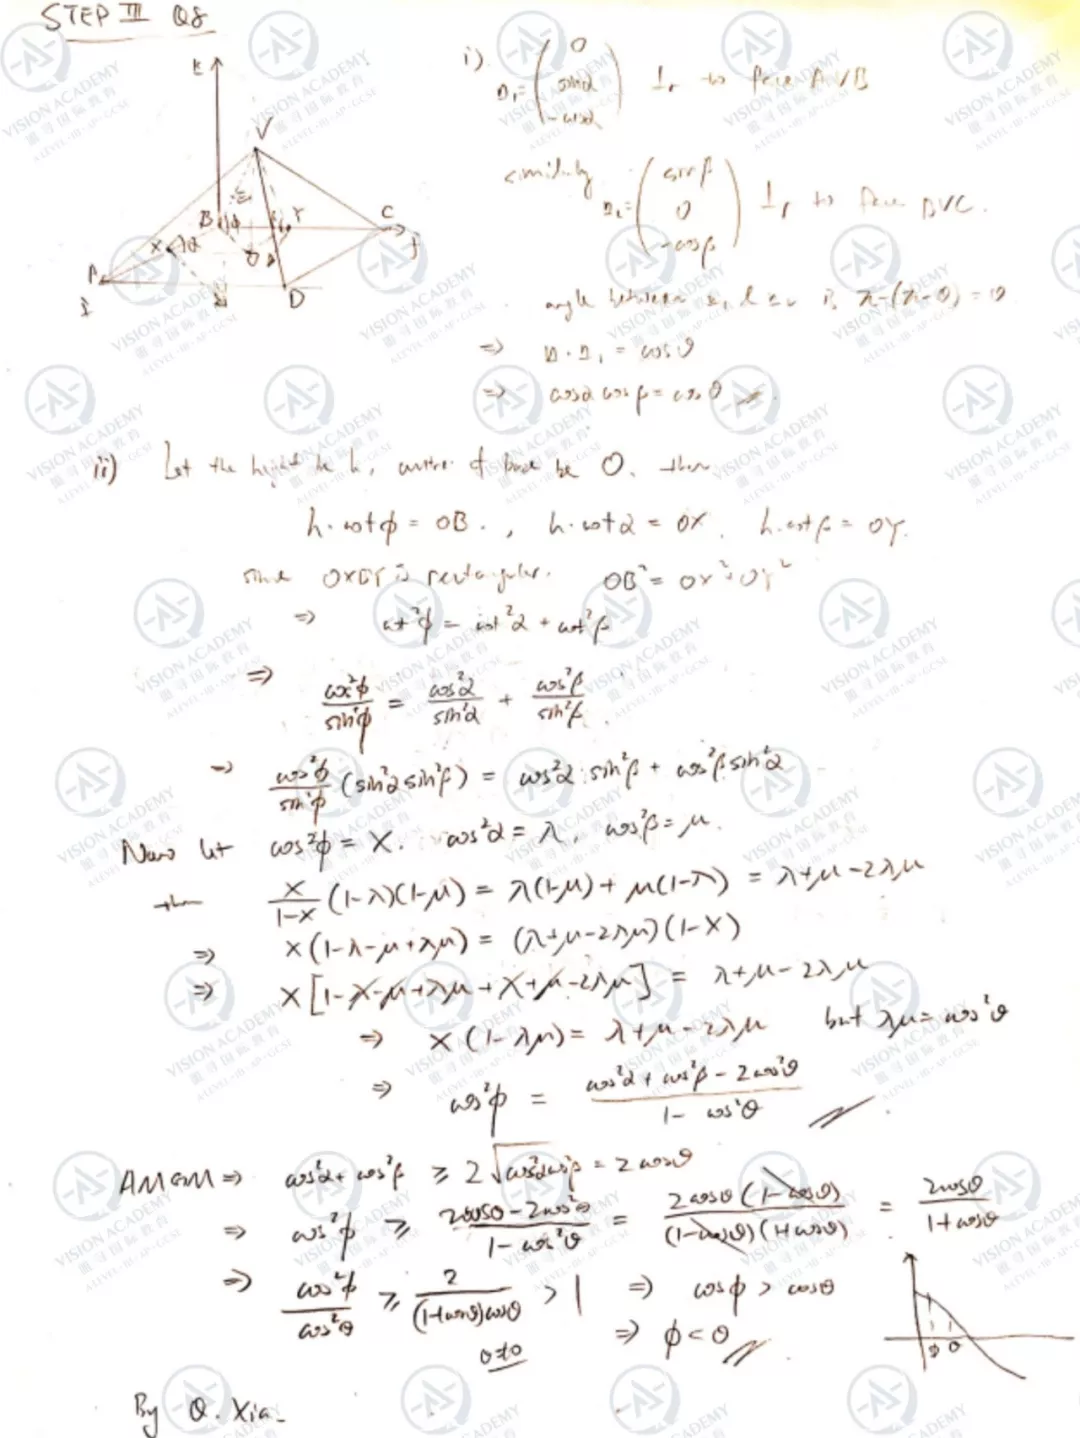 STEP III Q8
i). n₁ = (0, sinα, -cosα) ⊥r to face AVB
similarly n₂ = (sinβ, 0, -cosβ) ⊥r to face BVC.
angle between n₁ & n₂ is π-(π-θ) = θ
⇒ n·n₁ = cosθ
⇒ cosα cosβ = cosθ
ii) Let the height be h, centre of base be O. then
h·cotφ = OB., h·cotα = OX, h·cotβ = OY.
since OXBY is rectangular. OB² = OX²+OY²
⇒ cot²φ = cot²α + cot²β
⇒ cos²φ/sin²φ = cos²α/sin²α + cos²β/sin²β.
⇒ cos²φ/sin²φ (sin²α sin²β) = cos²α sin²β + cos²β sin²α
Now let cos²φ = X. cos²α = λ, cos²β = μ.
then X/(1-X) (1-λ)(1-μ) = λ(1-μ) + μ(1-λ) = λ+μ-2λμ
⇒ X(1-λ-μ+λμ) = (λ+μ-2λμ)(1-X)
⇒ X[1-λ-μ+λμ+λ+μ-2λμ] = λ+μ-2λμ
⇒ X(1-λμ) = λ+μ-2λμ but λμ = cos²θ
⇒ cos²φ = (cos²α + cos²β - 2cos²θ)/(1-cos²θ)
AMGM ⇒ cos²α + cos²β ≥ 2√(cos²αcos²β) = 2cosθ
⇒ cos²φ ≥ (2cosθ-2cos²θ)/(1-cos²θ) = 2cosθ(1-cosθ)/((1-cosθ)(1+cosθ)) = 2cosθ/(1+cosθ)
⇒ cos²φ/cos²θ ≥ 2/((1+cosθ)cosθ) > 1 ⇒ cosφ > cosθ
θ≠0 ⇒ φ < θ
By Q. Xia
VISION ACADEMY
ALEVEL·IB·AP·GCSE